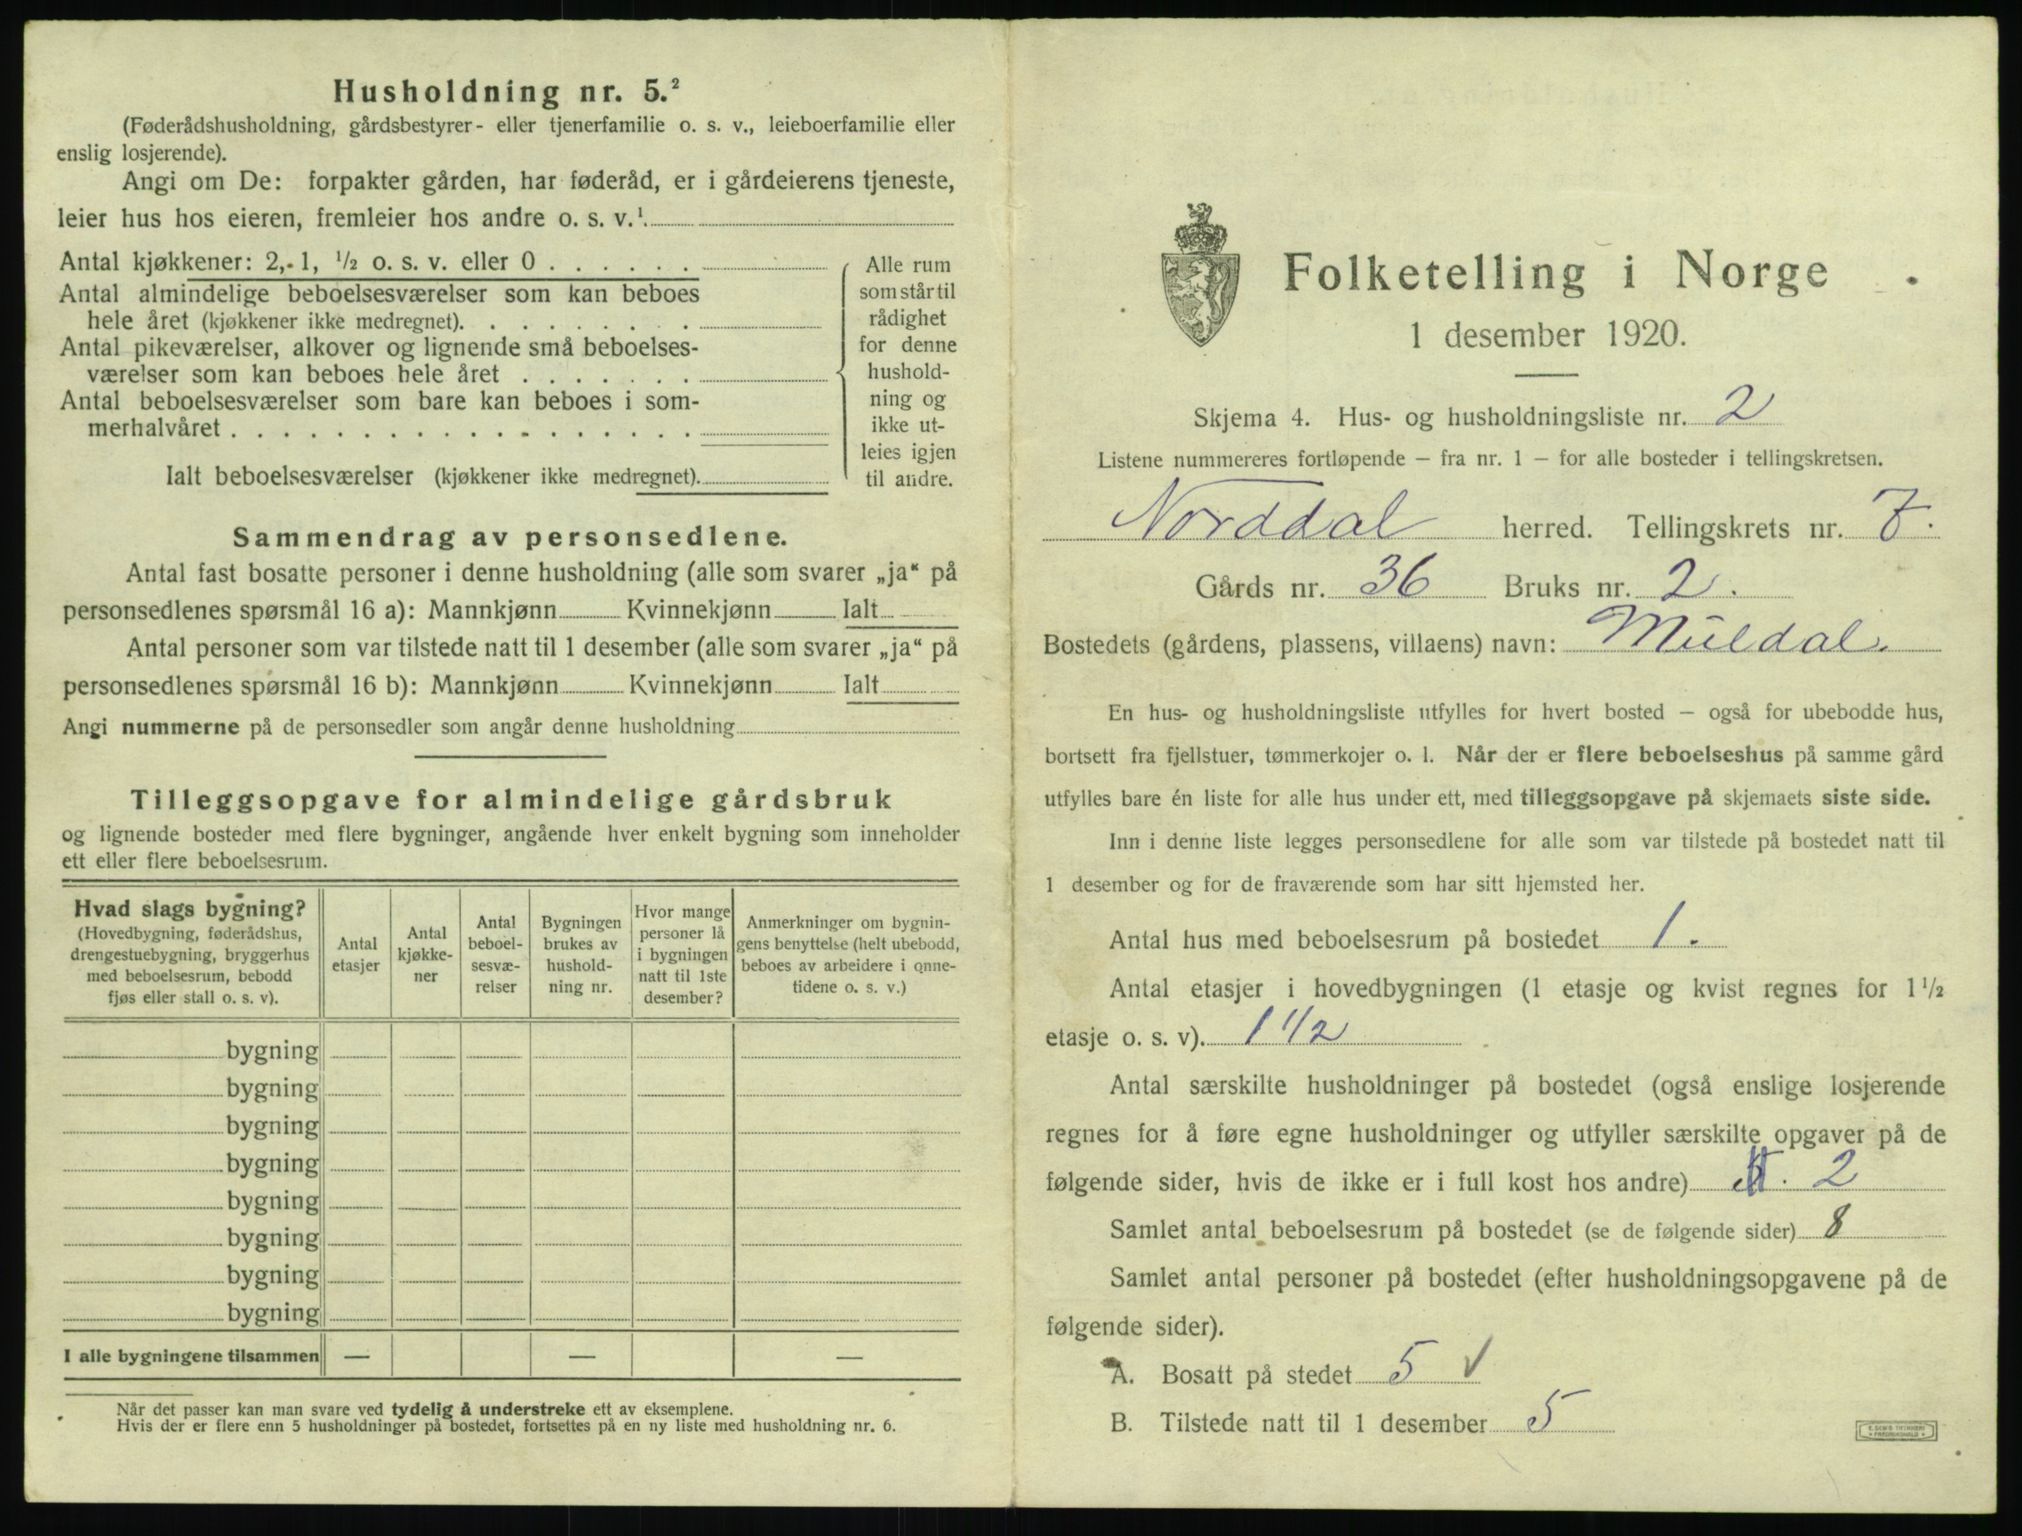 Husholdning nr. 5.²
(Føderådshusholdning, gårdsbestyrer- eller tjenerfamilie o. s. v., leieboerfamilie eller
enslig losjerende).
Angi om De: forpakter gården, har føderåd, er i gårdeierens tjeneste,
leier hus hos eieren, fremleier hos andre o. s. v.¹
Antal kjøkkener: 2, 1, ½ o. s. v. eller 0 . . . . . .
Antal almindelige beboelsesværelser som kan beboes
hele året (kjøkkener ikke medregnet). . . . . . . . .
Antal pikeværelser, alkover og lignende små beboelses-
værelser som kan beboes hele året . . . . . . .
Antal beboelsesværelser som bare kan beboes i som-
merhalvåret . . . . . . . . . . . . . . . . . .
Ialt beboelsesværelser (kjøkkener ikke medregnet).
Alle rum
som står til
rådighet
for denne
hushold-
ning og
ikke ut-
leies igjen
til andre.
Sammendrag av personsedlene.
Antal fast bosatte personer i denne husholdning (alle som svarer „ja“ på
personsedlenes spørsmål 16 a): Mannkjønn Kvinnekjønn Ialt
Antal personer som var tilstede natt til 1 desember (alle som svarer „ja“ på
personsedlenes spørsmål 16 b): Mannkjønn Kvinnekjønn Ialt
Angi nummerne på de personsedler som angår denne husholdning
Tilleggsopgave for almindelige gårdsbruk
og lignende bosteder med flere bygninger, angående hver enkelt bygning som inneholder
ett eller flere beboelsesrum.
Hvad slags bygning?
(Hovedbygning, føderådshus,
drengestuebygning, bryggerhus
med beboelsesrum, bebodd
fjøs eller stall o. s. v).
Antal
etasjer
Antal
kjøkke-
ner
Antal
beboel-
sesvæ-
relser
Bygningen
brukes av
hushold-
ning nr.
Hvor mange
personer lå
i bygningen
natt til 1ste
desember?
Anmerkninger om bygnin-
gens benyttelse (helt ubebodd,
beboes av arbeidere i onne-
tidene o. s. v.)
bygning
bygning
bygning
bygning
bygning
bygning
bygning
bygning
I alle bygningene tilsammen — — —
Når det passer kan man svare ved tydelig å understreke ett av eksemplene.
Hvis der er flere enn 5 husholdninger på bostedet, fortsettes på en ny liste med husholdning nr. 6.
Folketelling i Norge
1 desember 1920.
Skjema 4. Hus- og husholdningsliste nr. 2
Listene nummereres fortløpende — fra nr. 1 — for alle bosteder i tellingskretsen.
Norddal herred. Tellingskrets nr. 7.
Gårds nr. 36 Bruks nr. 2.
Bostedets (gårdens, plassens, villaens) navn: Muldal.
En hus- og husholdningsliste utfylles for hvert bosted — også for ubebodde hus,
bortsett fra fjellstuer, tømmerkojer o. l. Når der er flere beboelseshus på samme gård
utfylles bare én liste for alle hus under ett, med tilleggsopgave på skjemaets siste side.
Inn i denne liste legges personsedlene for alle som var tilstede på bostedet natt til
1 desember og for de fraværende som har sitt hjemsted her.
Antal hus med beboelsesrum på bostedet 1.
Antal etasjer i hovedbygningen (1 etasje og kvist regnes for 1½
etasje o. s. v). 1 1/2
Antal særskilte husholdninger på bostedet (også enslige losjerende
regnes for å føre egne husholdninger og utfyller særskilte opgaver på de
følgende sider, hvis de ikke er i full kost hos andre) . 2
Samlet antal beboelsesrum på bostedet (se de følgende sider) 8
Samlet antal personer på bostedet (efter husholdningsopgavene på de
følgende sider).
A. Bosatt på stedet 5 ✓
B. Tilstede natt til 1 desember 5